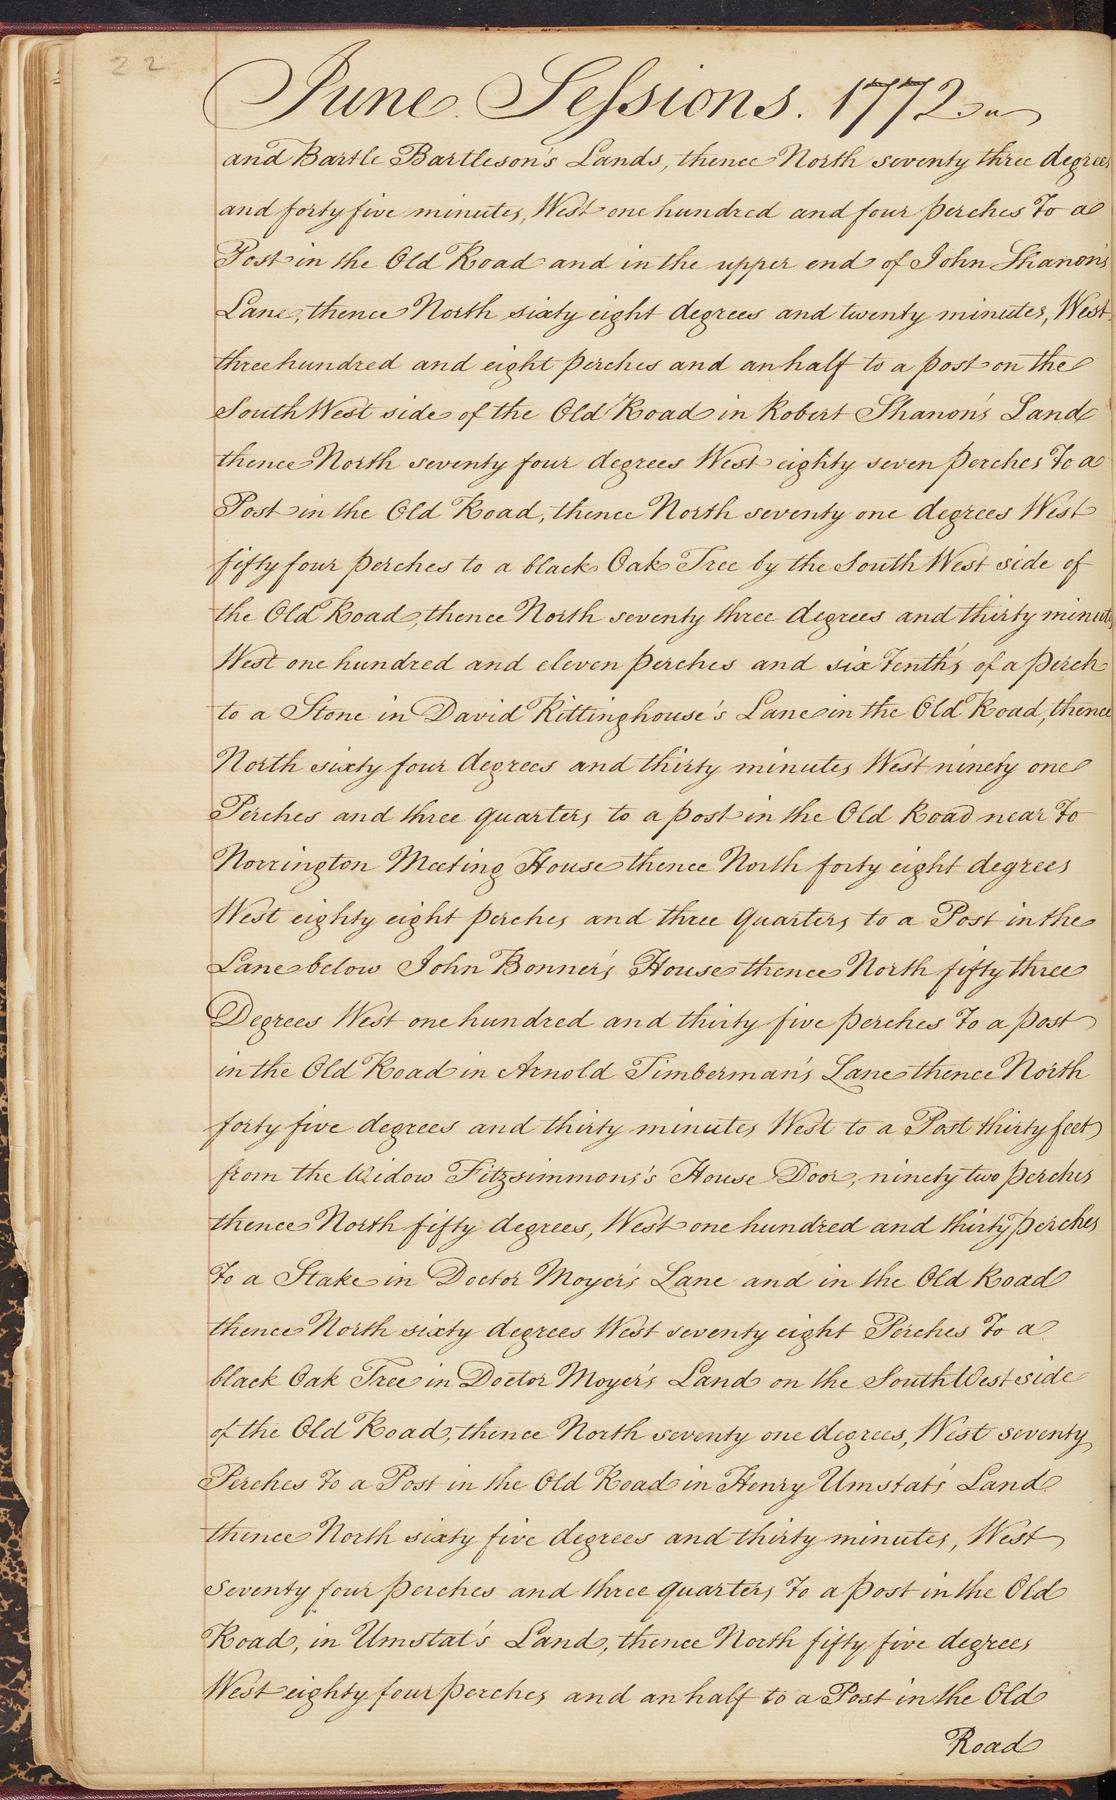 22
June Sessions. 1772
and Bartle Bartleson's Lands, thence North seventy three degrees
and forty five minutes, West one hundred and four perches To a
Post in the Old Road and in the upper end of John Shanon's
Lane, thence North sixty eight degrees and twenty minutes, West
three hundred and eight perches and an half to a post on the
South West side of the Old Road in Robert Shanon's Land
thence North seventy four degrees West eighty seven perches To a
Post in the Old Road, thence North seventy one degrees West
fifty four perches to a black Oak Tree by the South West side of
the Old Road, thence North seventy three degrees and thirty minutes,
West one hundred and eleven perches and six Tenth's of a perch
to a Stone in David Rittinghouse's Lane in the Old Road, thence
North sixty four degrees and thirty minutes West ninety one
Perches and three quarters to a post in the Old Road near To
Norrington Meeting House thence North forty eight degrees
West eighty eight perches and three quarters to a Post in the
Lane below John Bonner's House thence North fifty three
Degrees West one hundred and thirty five perches To a post
in the Old Road in Arnold Timberman's Lane thence North
forty five degrees and thirty minutes West to a Post thirty feet
from the Widow Fitzsimmons's House Door, ninety two perches
thence North fifty degrees, West one hundred and thirty perches
To a Stake in Doctor Moyer's Lane and in the Old Road
thence North sixty degrees West seventy eight Perches To a
black Oak Tree in Doctor Moyer's Land on the South West side
of the Old Road, thence North seventy one degrees, West seventy
Perches To a Post in the Old Road in Henry Umstat's Land
thence North sixty five degrees and thirty minutes, West
seventy four perches and three quarters To a post in the Old
Road, in Umstat's Land, thence North fifty five degrees
West eighty four perches and an half to a Post in the Old
Road